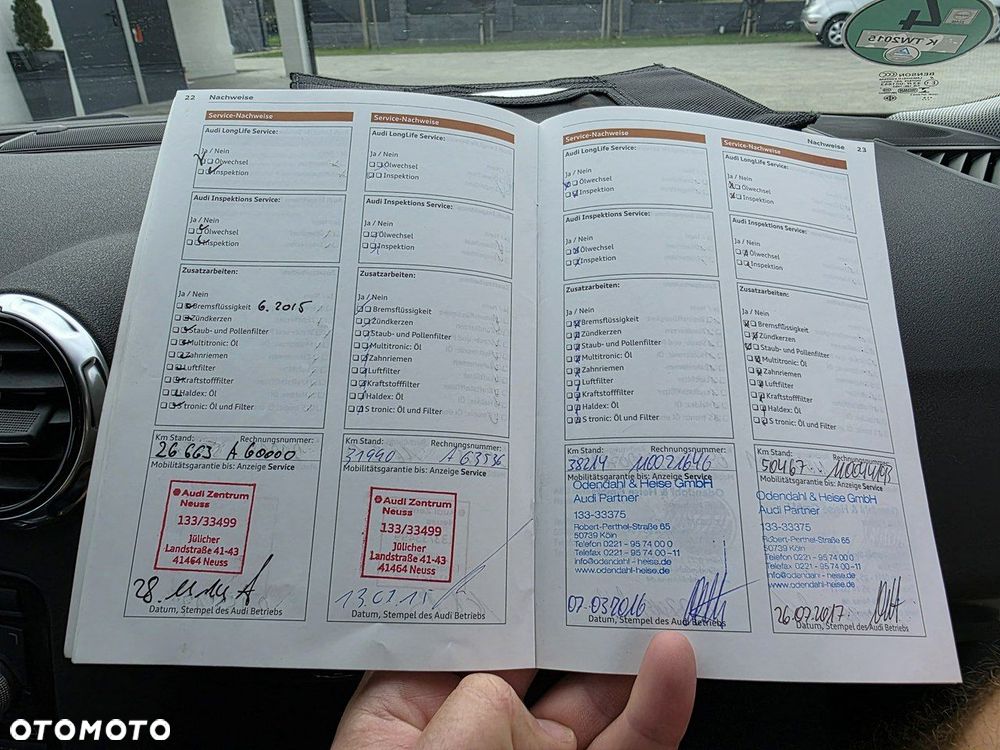 22 Nachweise
Service-Nachweise
Audi LongLife Service:
Ja / Nein
Ölwechsel
Inspektion
Audi Inspektions Service:
Ja / Nein
Ölwechsel
Inspektion
Zusatzarbeiten:
Ja / Nein
Bremsflüssigkeit 6.2015
Zündkerzen
Staub- und Pollenfilter
Multitronic: Öl
Zahnriemen
Luftfilter
Kraftstofffilter
Haldex: Öl
S tronic: Öl und Filter
Km Stand: Rechnungsnummer:
26663 A 60000
Mobilitätsgarantie bis: Anzeige Service
Audi Zentrum
Neuss
133/33499
Jülicher
Landstraße 41-43
41464 Neuss
Datum, Stempel des Audi Betriebs
Service-Nachweise
Audi LongLife Service:
Ja / Nein
Ölwechsel
Inspektion
Audi Inspektions Service:
Ja / Nein
Ölwechsel
Inspektion
Zusatzarbeiten:
Ja / Nein
Bremsflüssigkeit
Zündkerzen
Staub- und Pollenfilter
Multitronic: Öl
Zahnriemen
Luftfilter
Kraftstofffilter
Haldex: Öl
S tronic: Öl und Filter
Km Stand: Rechnungsnummer:
31990 A 63536
Mobilitätsgarantie bis: Anzeige Service
Audi Zentrum
Neuss
133/33499
Jülicher
Landstraße 41-43
41464 Neuss
Datum, Stempel des Audi Betriebs
Service-Nachweise
Audi LongLife Service:
Ja / Nein
Ölwechsel
Inspektion
Audi Inspektions Service:
Ja / Nein
Ölwechsel
Inspektion
Zusatzarbeiten:
Ja / Nein
Bremsflüssigkeit
Zündkerzen
Staub- und Pollenfilter
Multitronic: Öl
Zahnriemen
Luftfilter
Kraftstofffilter
Haldex: Öl
S tronic: Öl und Filter
Km Stand: Rechnungsnummer:
38214 110071646
Mobilitätsgarantie bis: Anzeige Service
Odendahl & Heise GmbH
Audi Partner
133-33375
Robert-Perthel-Straße 65
50739 Köln
Telefon 0221 - 95 74 00 0
Telefax 0221 - 95 74 00 -11
info@odendahl-heise.de
www.odendahl-heise.de
07.03.2016
Datum, Stempel des Audi Betriebs
Nachweise 23
Service-Nachweise
Audi LongLife Service:
Ja / Nein
Ölwechsel
Inspektion
Audi Inspektions Service:
Ja / Nein
Ölwechsel
Inspektion
Zusatzarbeiten:
Ja / Nein
Bremsflüssigkeit
Zündkerzen
Staub- und Pollenfilter
Multitronic: Öl
Zahnriemen
Luftfilter
Kraftstofffilter
Haldex: Öl
S tronic: Öl und Filter
Km Stand: Rechnungsnummer:
50467
Mobilitätsgarantie bis: Anzeige Service
Odendahl & Heise GmbH
Audi Partner
133-33375
Robert-Perthel-Straße 65
50739 Köln
Telefon 0221 - 95 74 00 0
Telefax 0221 - 95 74 00 -11
info@odendahl-heise.de
www.odendahl-heise.de
26.07.2017
Datum, Stempel des Audi Betriebs
4
K TW2015
BENSON
OTOMOTO